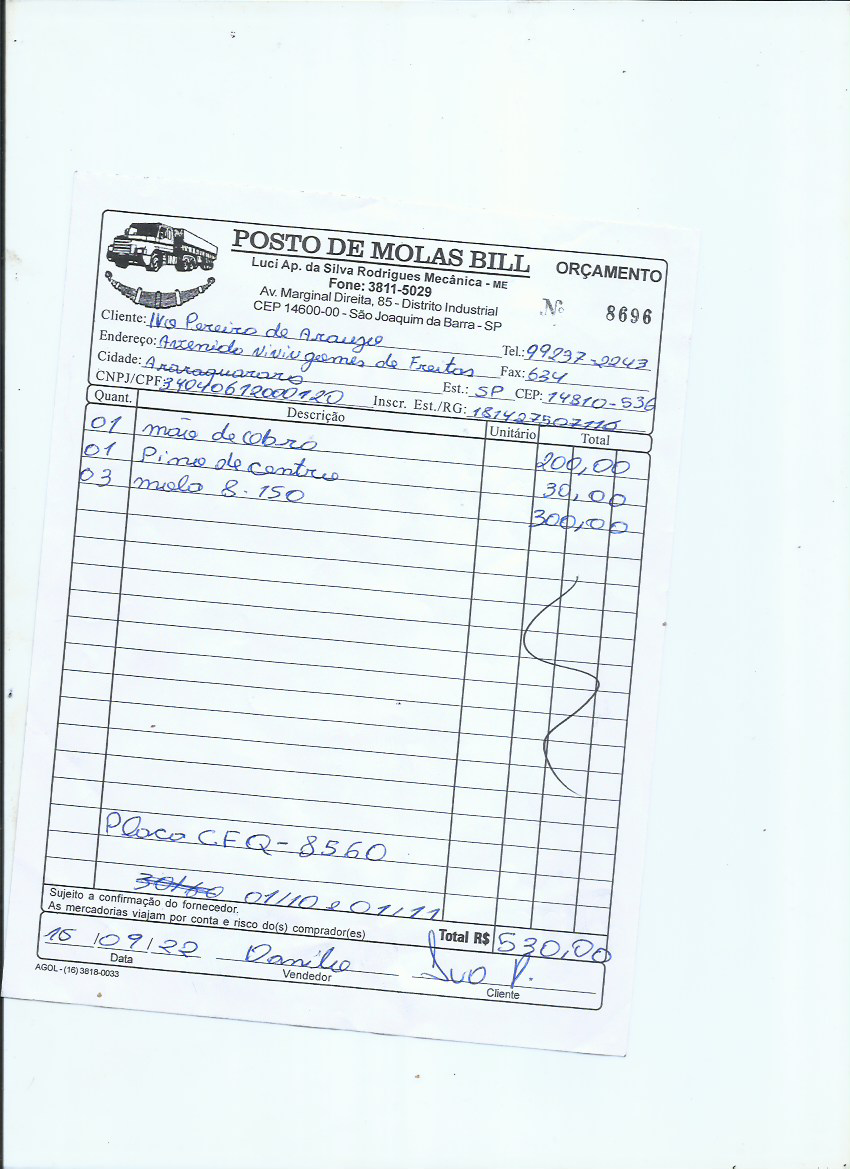 POSTO DE MOLAS BILL
ORÇAMENTO
Luci Ap. da Silva Rodrigues Mecânica - ME
Fone: 3811-5029
Av. Marginal Direita, 85 - Distrito Industrial
CEP 14600-00 - São Joaquim da Barra - SP
Nº 8696
Cliente: Ivo Pereira de Araujo Tel.: 99237-2243
Endereço: Avenida Vivi gomes de Freitas Fax: 634
Cidade: Araraquara Est.: SP CEP: 14810-536
CNPJ/CPF 34040612000120 Inscr. Est./RG: 181427507110
Quant. Descrição Unitário Total
01 mão de obra 200,00
01 Pino de centro 30,00
03 mola 8-150 300,00
Placa CFQ-8560
01/10 e 01/11
Sujeito a confirmação do fornecedor.
As mercadorias viajam por conta e risco do(s) comprador(es)
Total R$ 530,00
15/09/22 Danilo Ivo P.
Data Vendedor Cliente
AGOL - (16) 3818-0033